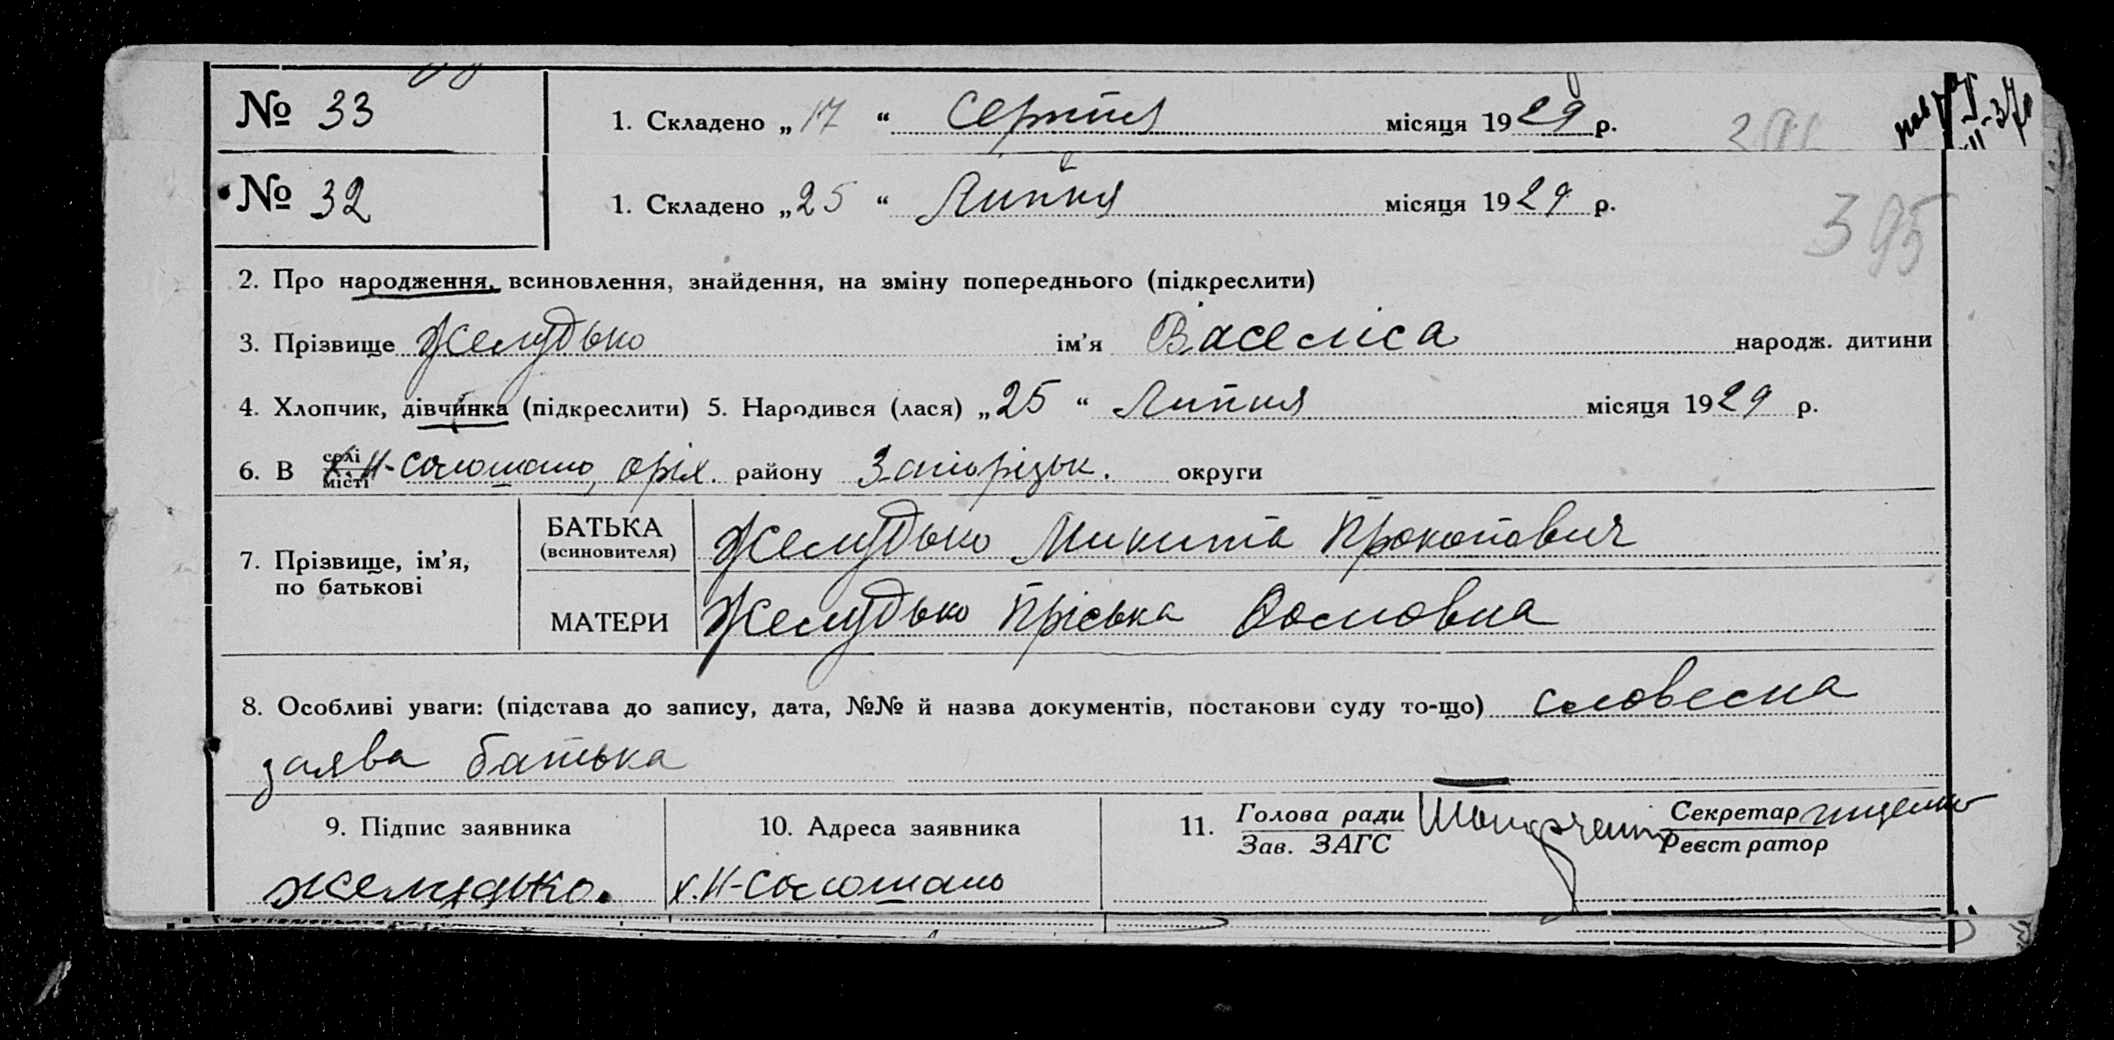 № 33 1. Складено „17“ Серпня місяця 1929 р.
№ 32 1. Складено „25“ Липня місяця 1929 р.
395
2. Про народження, всиновлення, знайдення, на зміну попереднього (підкреслити)
3. Прізвище Желудько ім'я Васеліса народж. дитини
4. Хлопчик, дівчинка (підкреслити) 5. Народився (лася) „25“ Липня місяця 1929 р.
6. В селі місті Х. Н-Солошано, оріх. району Запоріzьк. округи
7. Прізвище, ім'я, по батькові
БАТЬКА (всиновителя) Желудько Микита Прокопович
МАТЕРИ Желудько Пріська
8. Особливі уваги: (підстава до запису, дата, №№ й назва документів, постанови суду то-що) словесна
заява батька
9. Підпис заявника 10. Адреса заявника 11. Голова ради Секретар
Зав. ЗАГС Реєстратор
желудько. х. Н-Солошано